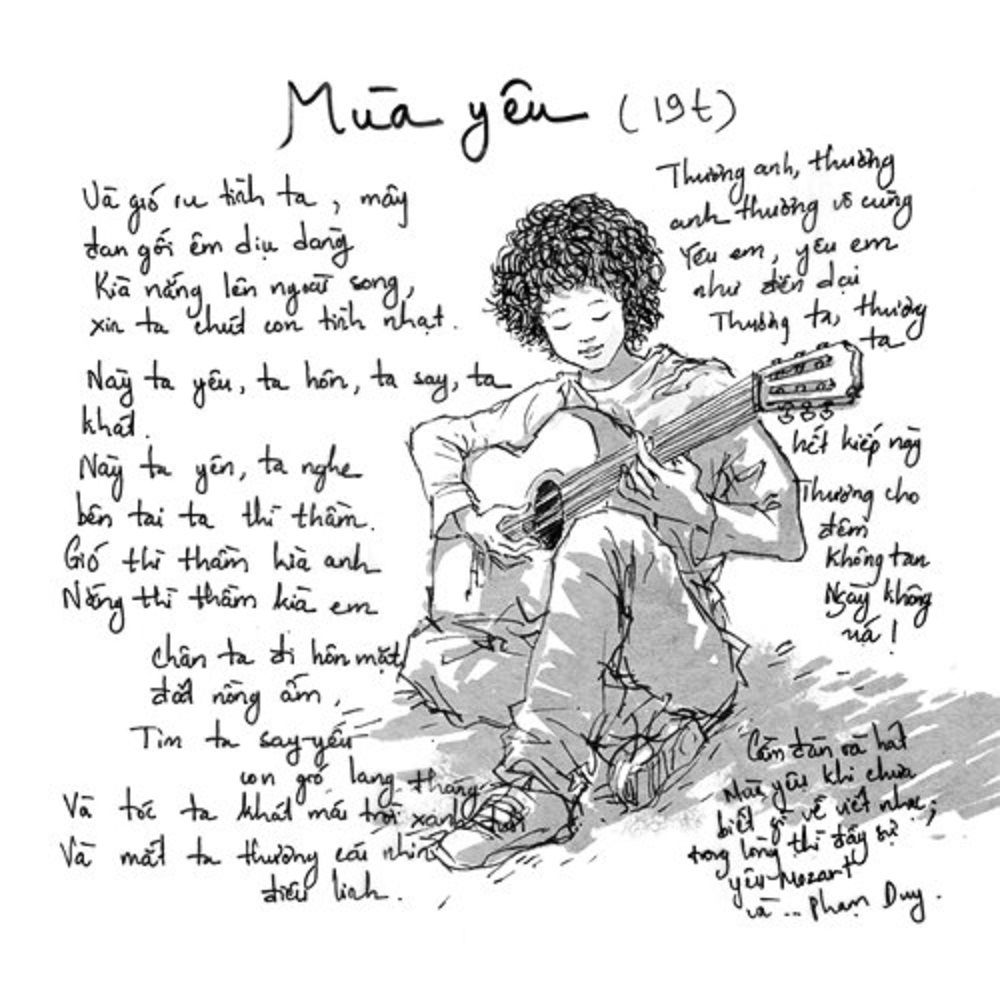 Mùa yêu (19t)
Và gió ru tình ta, mây
đan gối êm dịu dàng
Kìa nắng lên người song,
xin ta chút con tình nhạt.
Này ta yêu, ta hôn, ta say, ta
khát.
Này ta yên, ta nghe
bên tai ta thì thầm.
Gió thì thầm hìà anh
Nắng thì thầm kìa em
chân ta đi hôn mặt
đất nồng ấm,
Tim ta say-yếu
con gió lang thang
Và tóc ta khát mái trời xanh
Và mắt ta thương cái nhìn
điêu linh.
Thương anh, thương
anh thương vô cùng
Yêu em, yêu em
như đến dại
Thương ta, thương
ta
hết kiếp này
Thương cho
đêm
không tan
Ngày không
uá!
Cầm đàn và hát
Mùa yêu khi chưa
biết gì về viết nhạc;
trong lòng thì đầy sự
yêu Mozart
và... Phạm Duy.